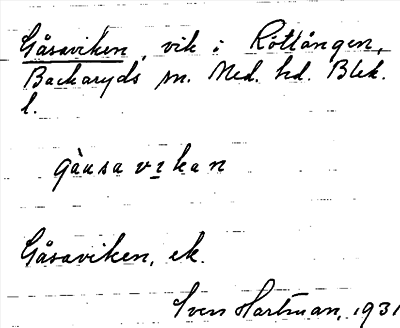 Gåsaviken, vik i Rottången,
Backaryds sn. Med. hd. Blek.
l.
gàusa vıkan
Gåsaviken, ek.
Sven Hartman, 1931